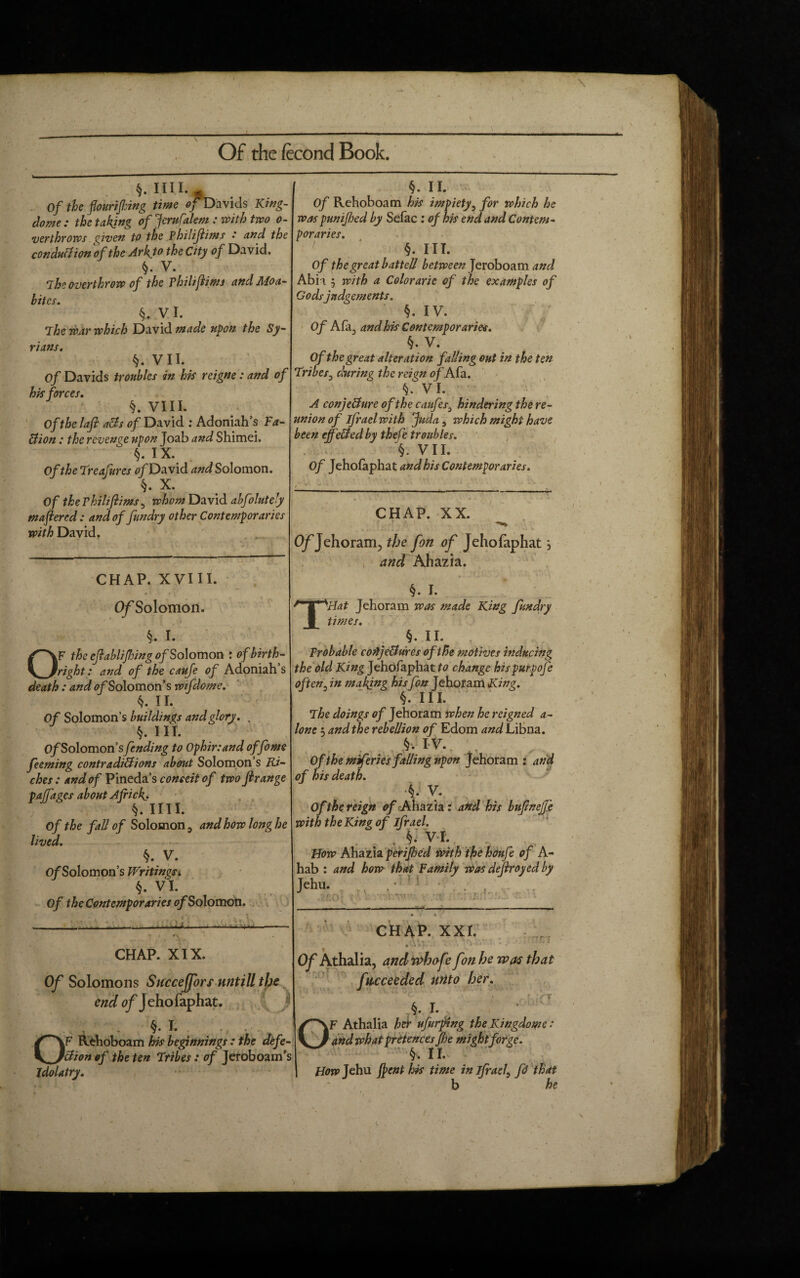 Of the ſecond Book.
§. IIII.
Of the flouriſhing time of Davids King-
dome : the taking of Jeruſalem : with two o-
verthrows given to the Philiſtims : and the
conduction of the Ark to the City of David.
§. V.
The overthrow of the Philiſtims and Moa-
bites.
§. VI.
The war which David made upon the Sy-
rians.
§. VII.
Of Davids troubles in his reigne : and of
his forces.
§. VIII.
Of the laſt acts of David : Adoniah's Fa-
ction : the revenge upon Joab and Shimei.
§. IX.
Of the Treaſures of David and Solomon.
§. X.
Of the Philiſtims, whom David abſolutely
maſtered : and of ſundry other Contemporaries
with David.
CHAP. XVIII.
Of Solomon.
§. I.
OF the eſtabliſhing of Solomon : of birth-
right : and of the cauſe of Adoniah's
death : and of Solomon's wiſdome.
§. II.
Of Solomon's buildings and glory.
§. III.
Of Solomon's ſending to Ophir: and of ſome
ſeeming contradictions about Solomon's Ri-
ches : and of Pineda's conceit of two ſtrange
paſſages about Africk.
§. IIII.
Of the fall of Solomon, and how long he
lived.
§. V.
Of Solomon's Writings.
§. VI.
Of the Contemporaries of Solomon.
CHAP. XIX.
Of Solomons Succeſſors untill the
end of Jehoſaphat.
§. I.
OF Rehoboam his beginnings : the defe-
ction of the ten Tribes : of Jeroboam's
Idolatry.
§. II.
Of Rehoboam his impiety, for which he
was puniſhed by Seſac : of his end and Contem-
poraries.
§. III.
Of the great battell between Jeroboam and
Abia ; with a Colorarie of the examples of
Gods judgements.
§. IV.
Of Aſa, and his Contemporaries.
§. V.
Of the great alteration falling out in the ten
Tribes, during the reign of Aſa.
§. VI.
A conjecture of the cauſes, hindering the re-
union of Iſrael with Juda, which might have
been effected by theſe troubles.
§. VII.
Of Jehoſaphat and his Contemporaries.
CHAP. XX.
Of Jehoram, the ſon of Jehoſaphat ;
and Ahazia.
§. I.
THat Jehoram was made King ſundry
times.
§. II.
Probable conjectures of the motives inducing
the old King Jehoſaphat to change his purpoſe
often, in making his ſon Jehoram King.
§. III.
The doings of Jehoram when he reigned a-
lone ; and the rebellion of Edom and Libna.
§. IV.
Of the miſeries falling upon Jehoram : and
of his death.
§. V.
Of the reign of Ahazia : and his buſineſſe
with the King of Iſrael.
§. VI.
How Ahazia periſhed with the houſe of A-
hab : and how that Family was deſtroyed by
Jehu.
CHAP. XXI.
Of Athalia, and whoſe ſon he was that
ſucceeded unto her.
§. I.
OF Athalia her uſurping the Kingdome :
and what pretences ſhe might forge.
§. II.
How Jehu ſpent his time in Iſrael, ſo that
b he